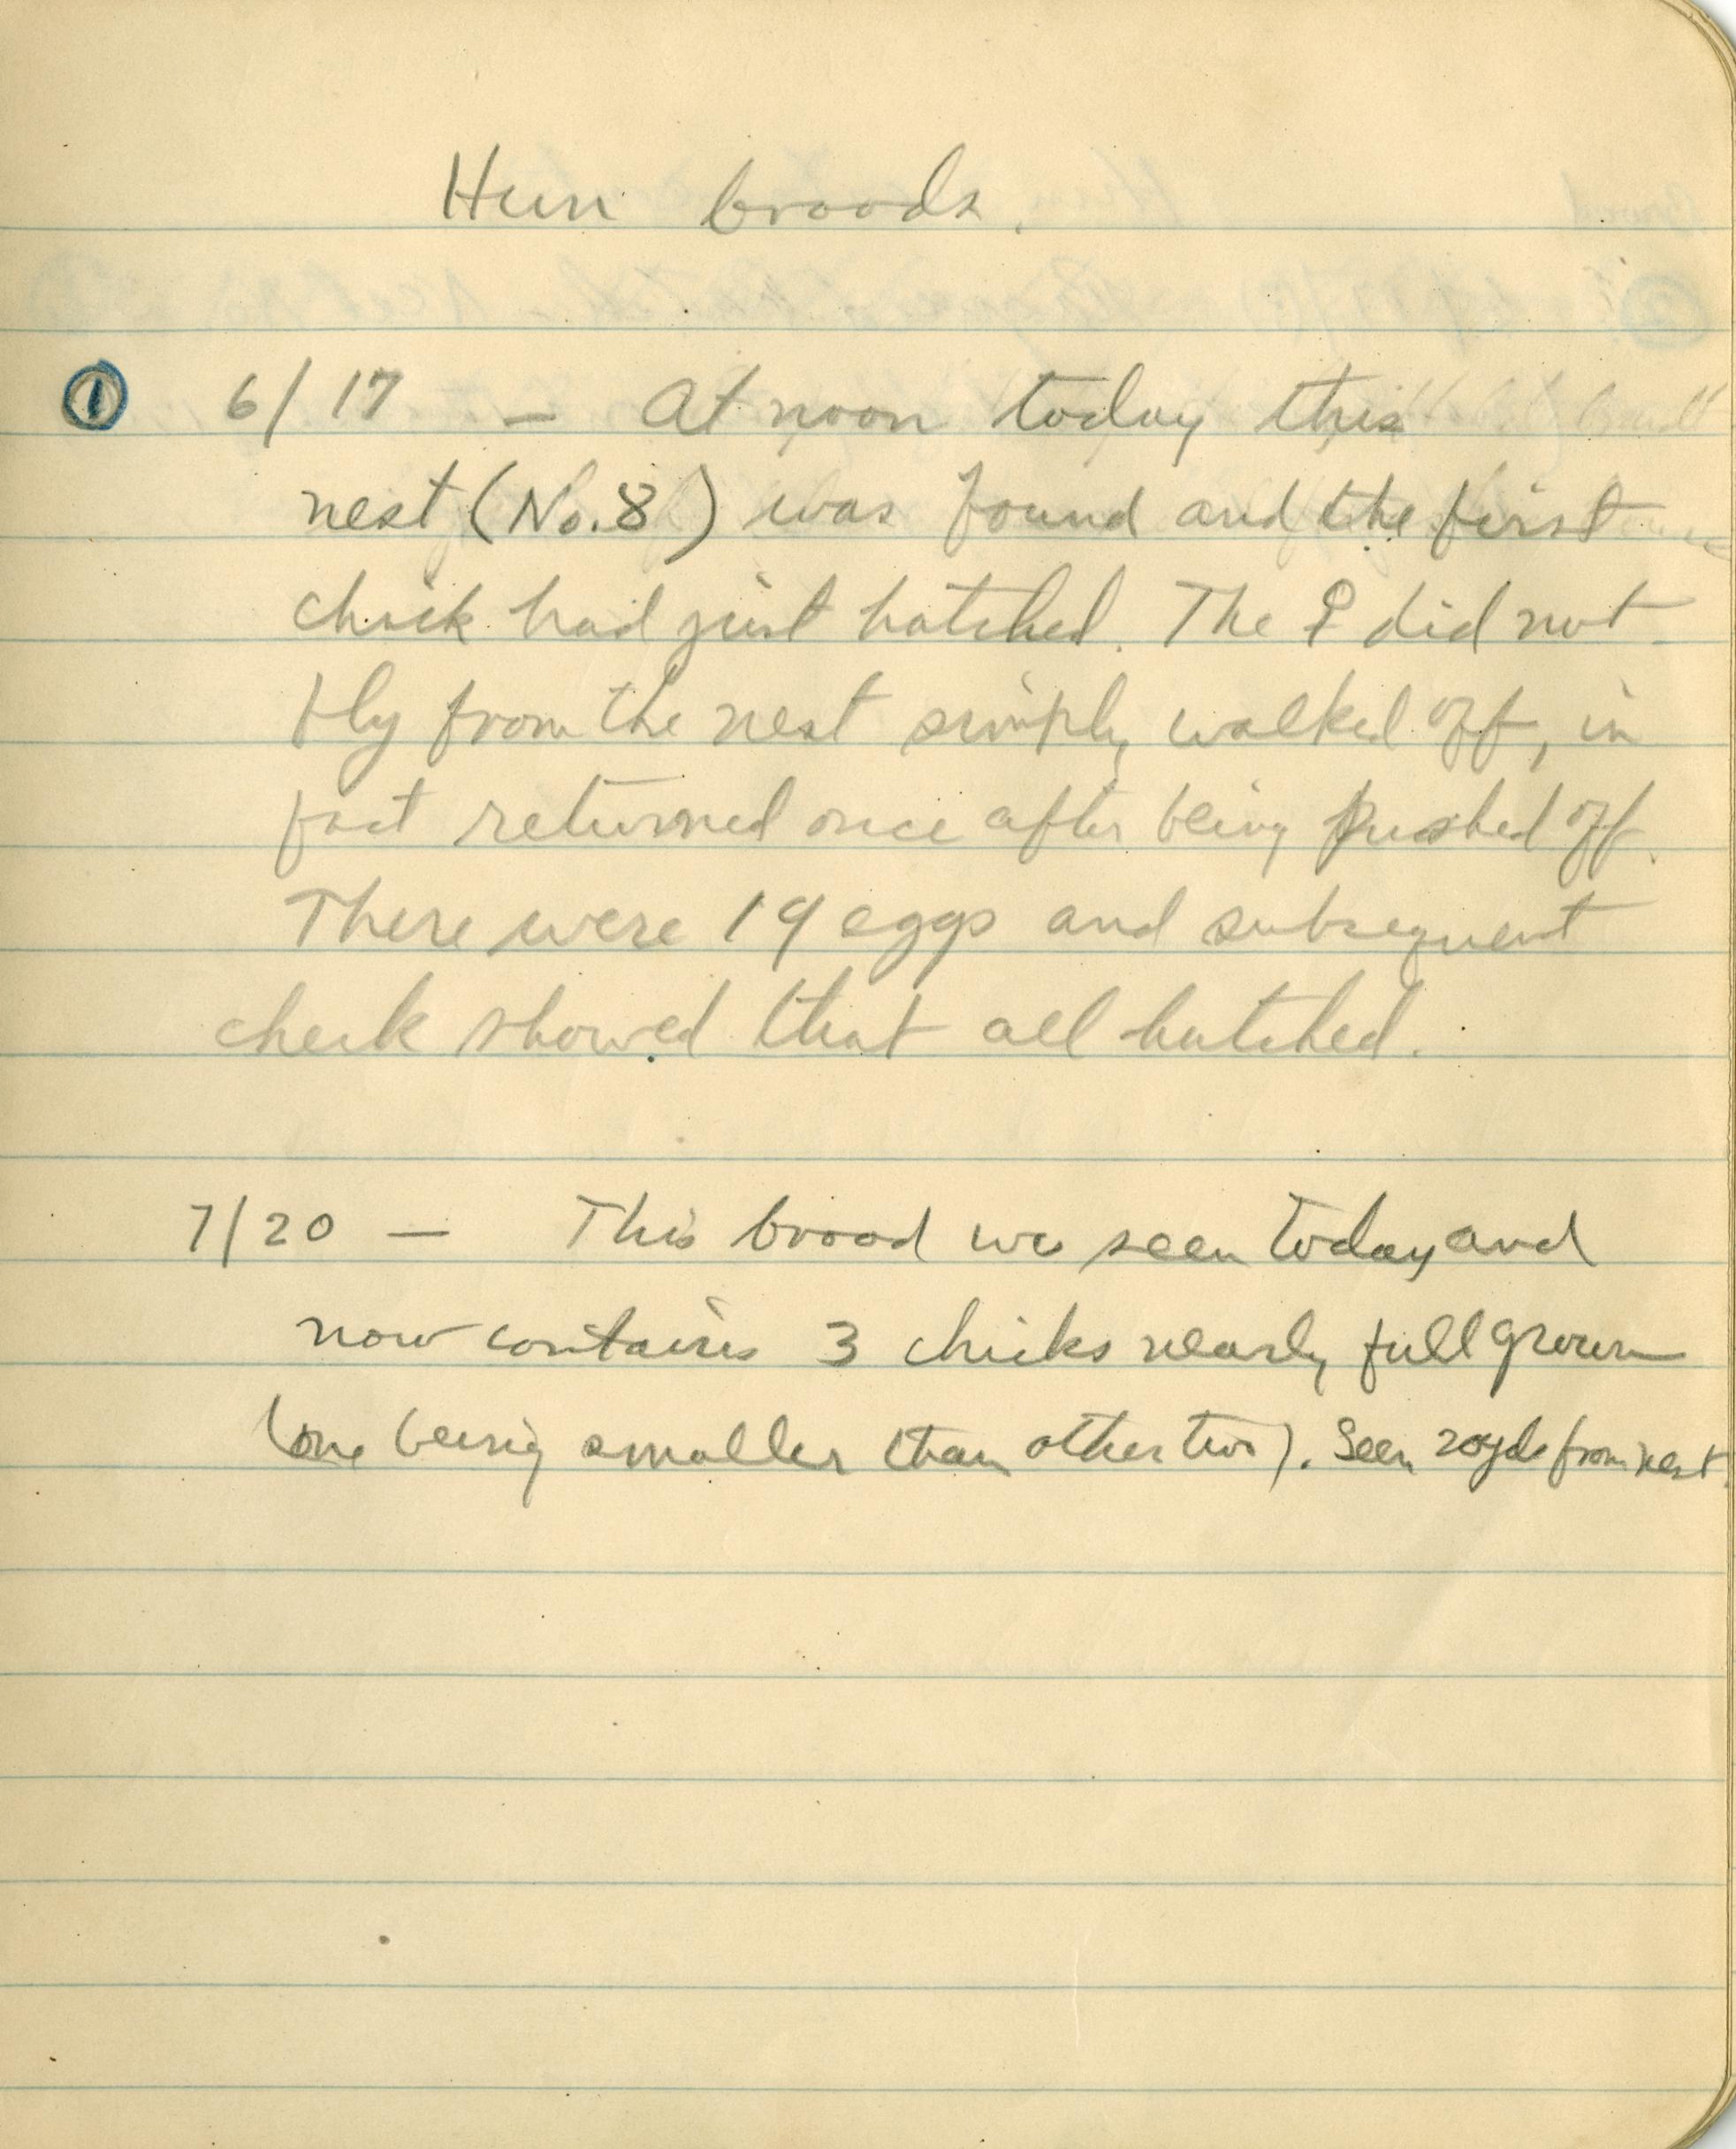 Hun broods.
① 6/17 — At noon today this
nest (No. 8) was found and the first
chick had just hatched. The ♀ did not
fly from the nest simply walked off, in
fact returned once after being pushed off.
There were 19 eggs and subsequent
check showed that all hatched.
7/20 — This brood was seen today and
now contains 3 chicks nearly full grown
(one being smaller than other two). Seen 20 yds from nest.